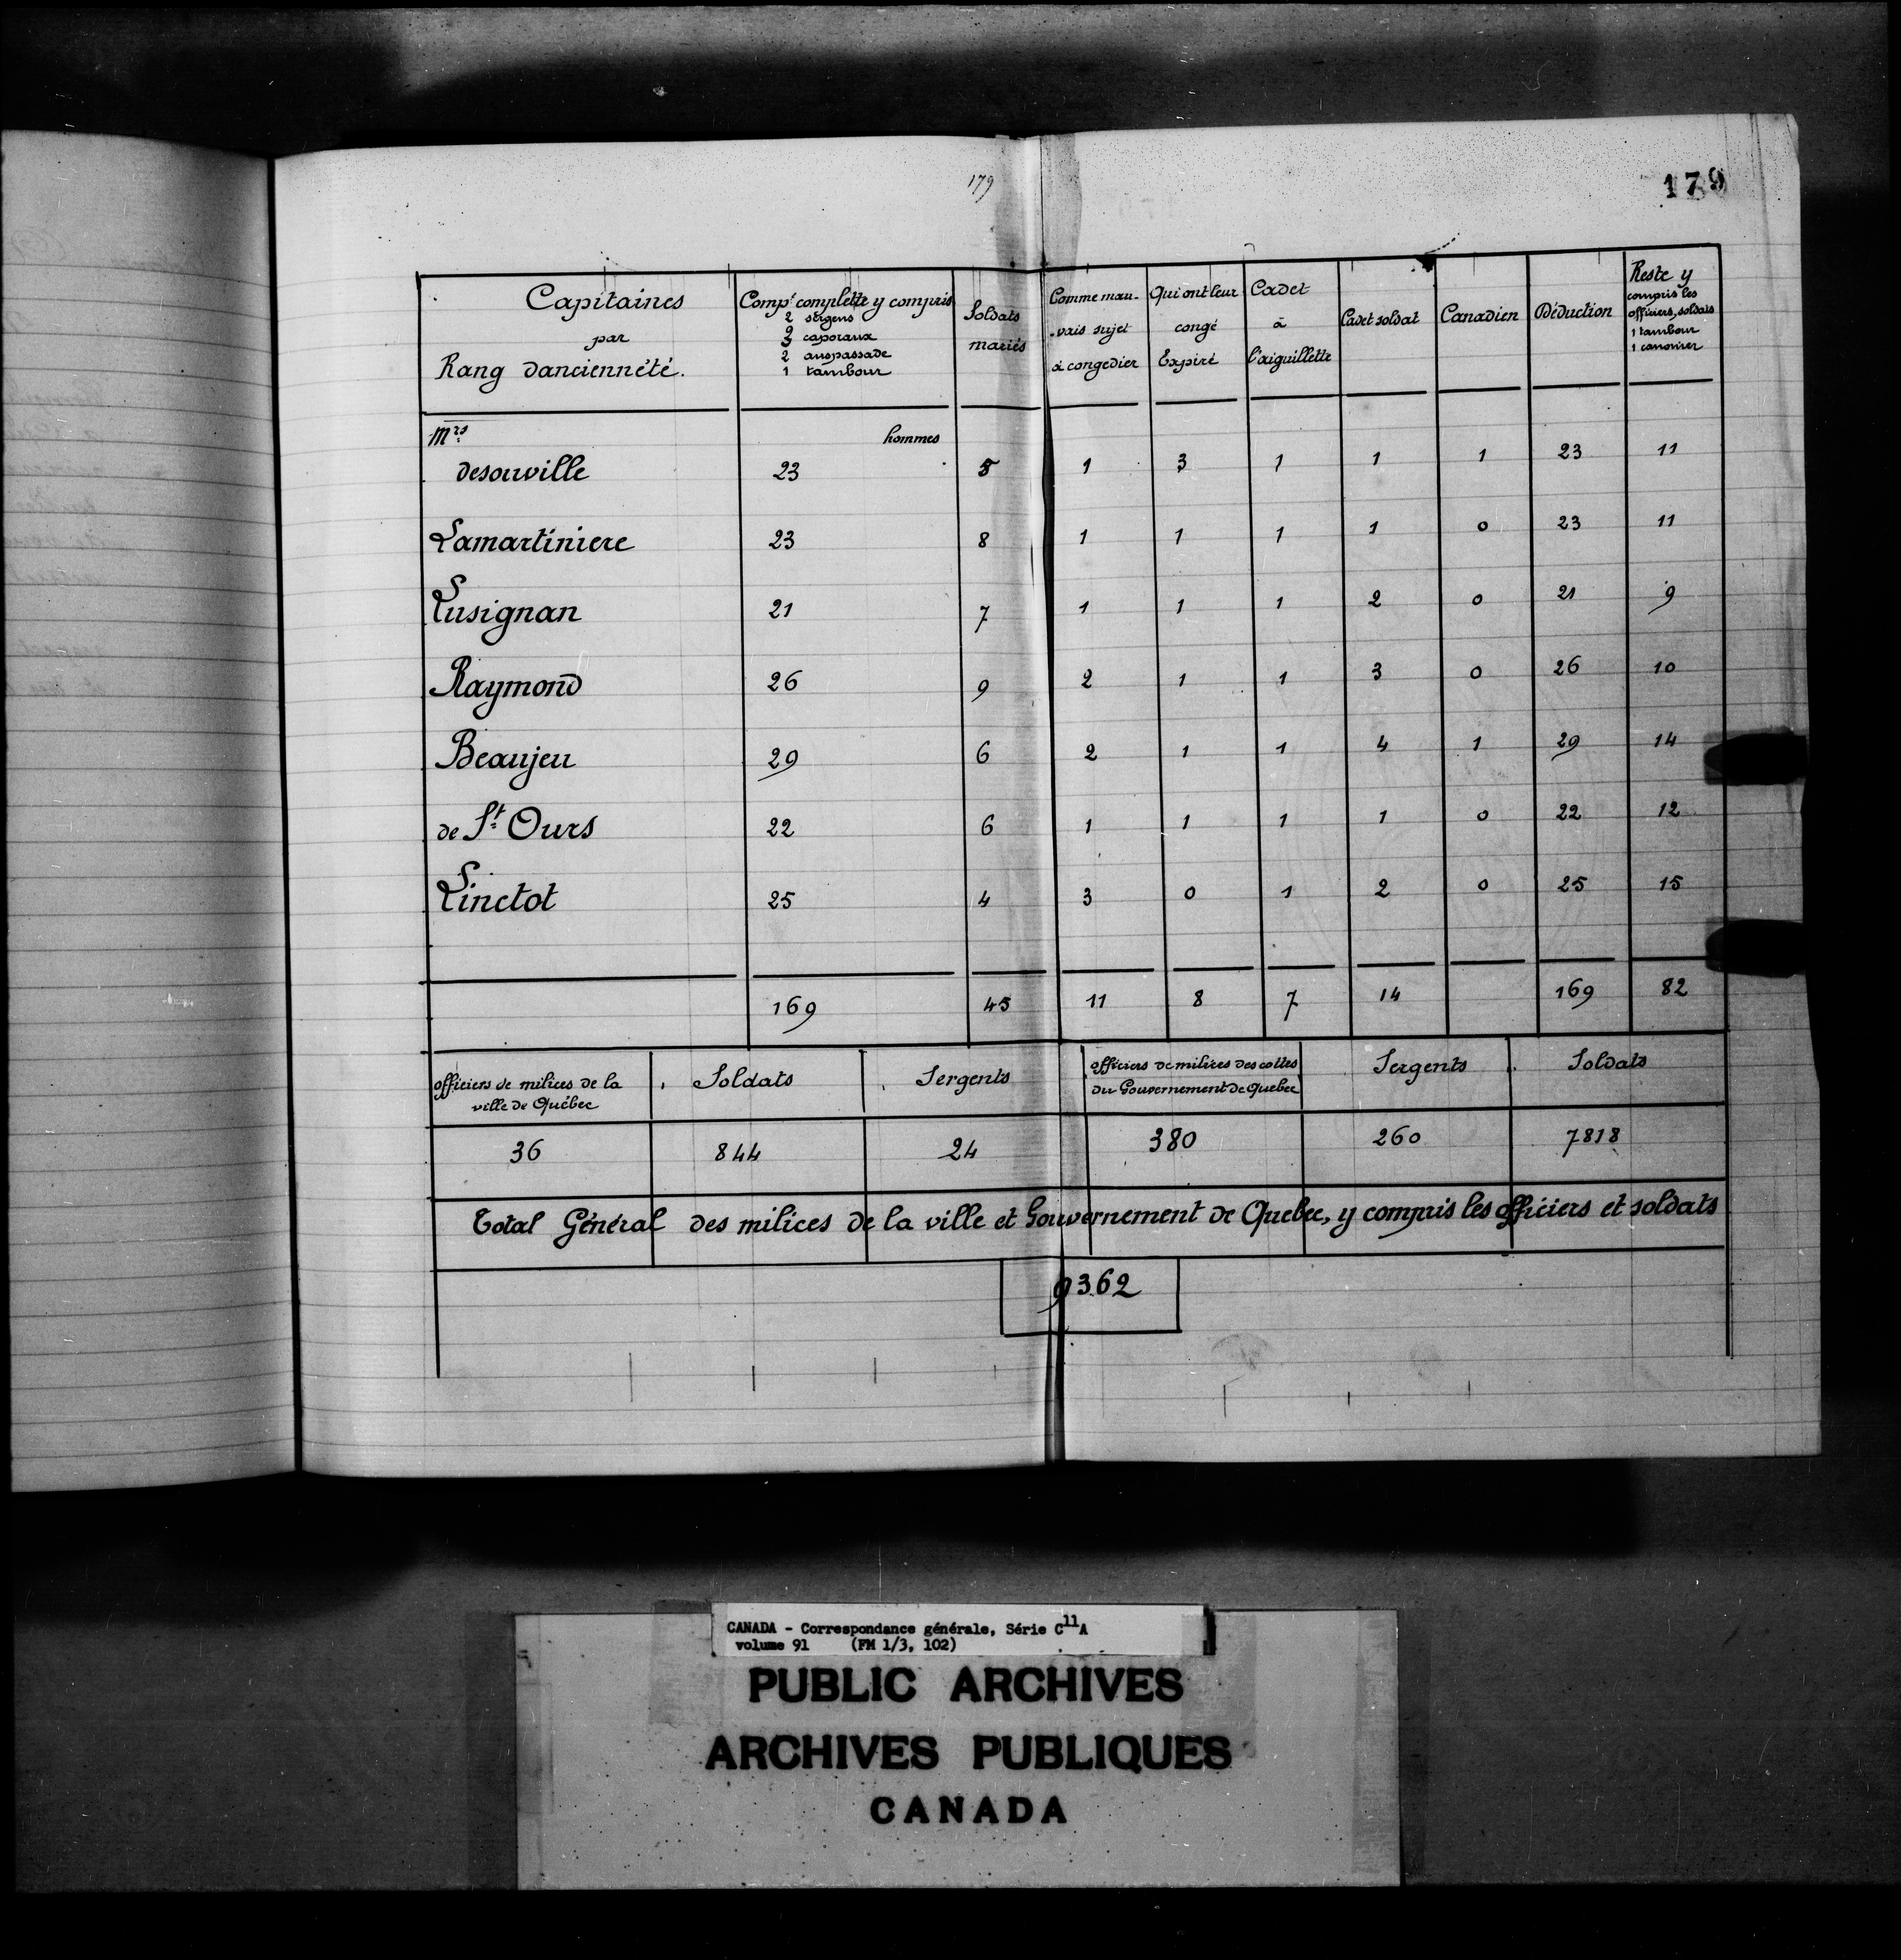 179
179
Capitaines
par
Rang d'anciennété.
Comp.^e complette y compris
2 sergens
3 caporaux
2 anspassade
1 tambour
Soldats
mariés
Comme mau-
-vais sujet
à congedier
Qui ont leur
congé
Expiré
Cadet
à
l'aiguillette
Cadet soldat
Canadien
Déduction
Reste y
compris les
officiers, soldats
1 tambour
1 canonier
M.^rs hommes
desouville 23 5 1 3 1 1 1 23 11
Lamartiniere 23 8 1 1 1 1 0 23 11
Lusignan 21 7 1 1 1 2 0 21 9
Raymond 26 9 2 1 1 3 0 26 10
Beaujeu 29 6 2 1 1 4 1 29 14
de S.^t Ours 22 6 1 1 1 1 0 22 12
Linctot 25 4 3 0 1 2 0 25 15
169 45 11 8 7 14 169 82
officiers de milices de la
ville de Québec
Soldats
Sergents
officiers de milices des cottes
du Gouvernement de Quebec
Sergents
Soldats
36 844 24 380 260 7818
Total Général des milices de la ville et Gouvernement de Quebec, y compris les officiers et soldats
9362
CANADA - Correspondance générale, Série C^11A
volume 91 (FM 1/3, 102)
PUBLIC ARCHIVES
ARCHIVES PUBLIQUES
CANADA